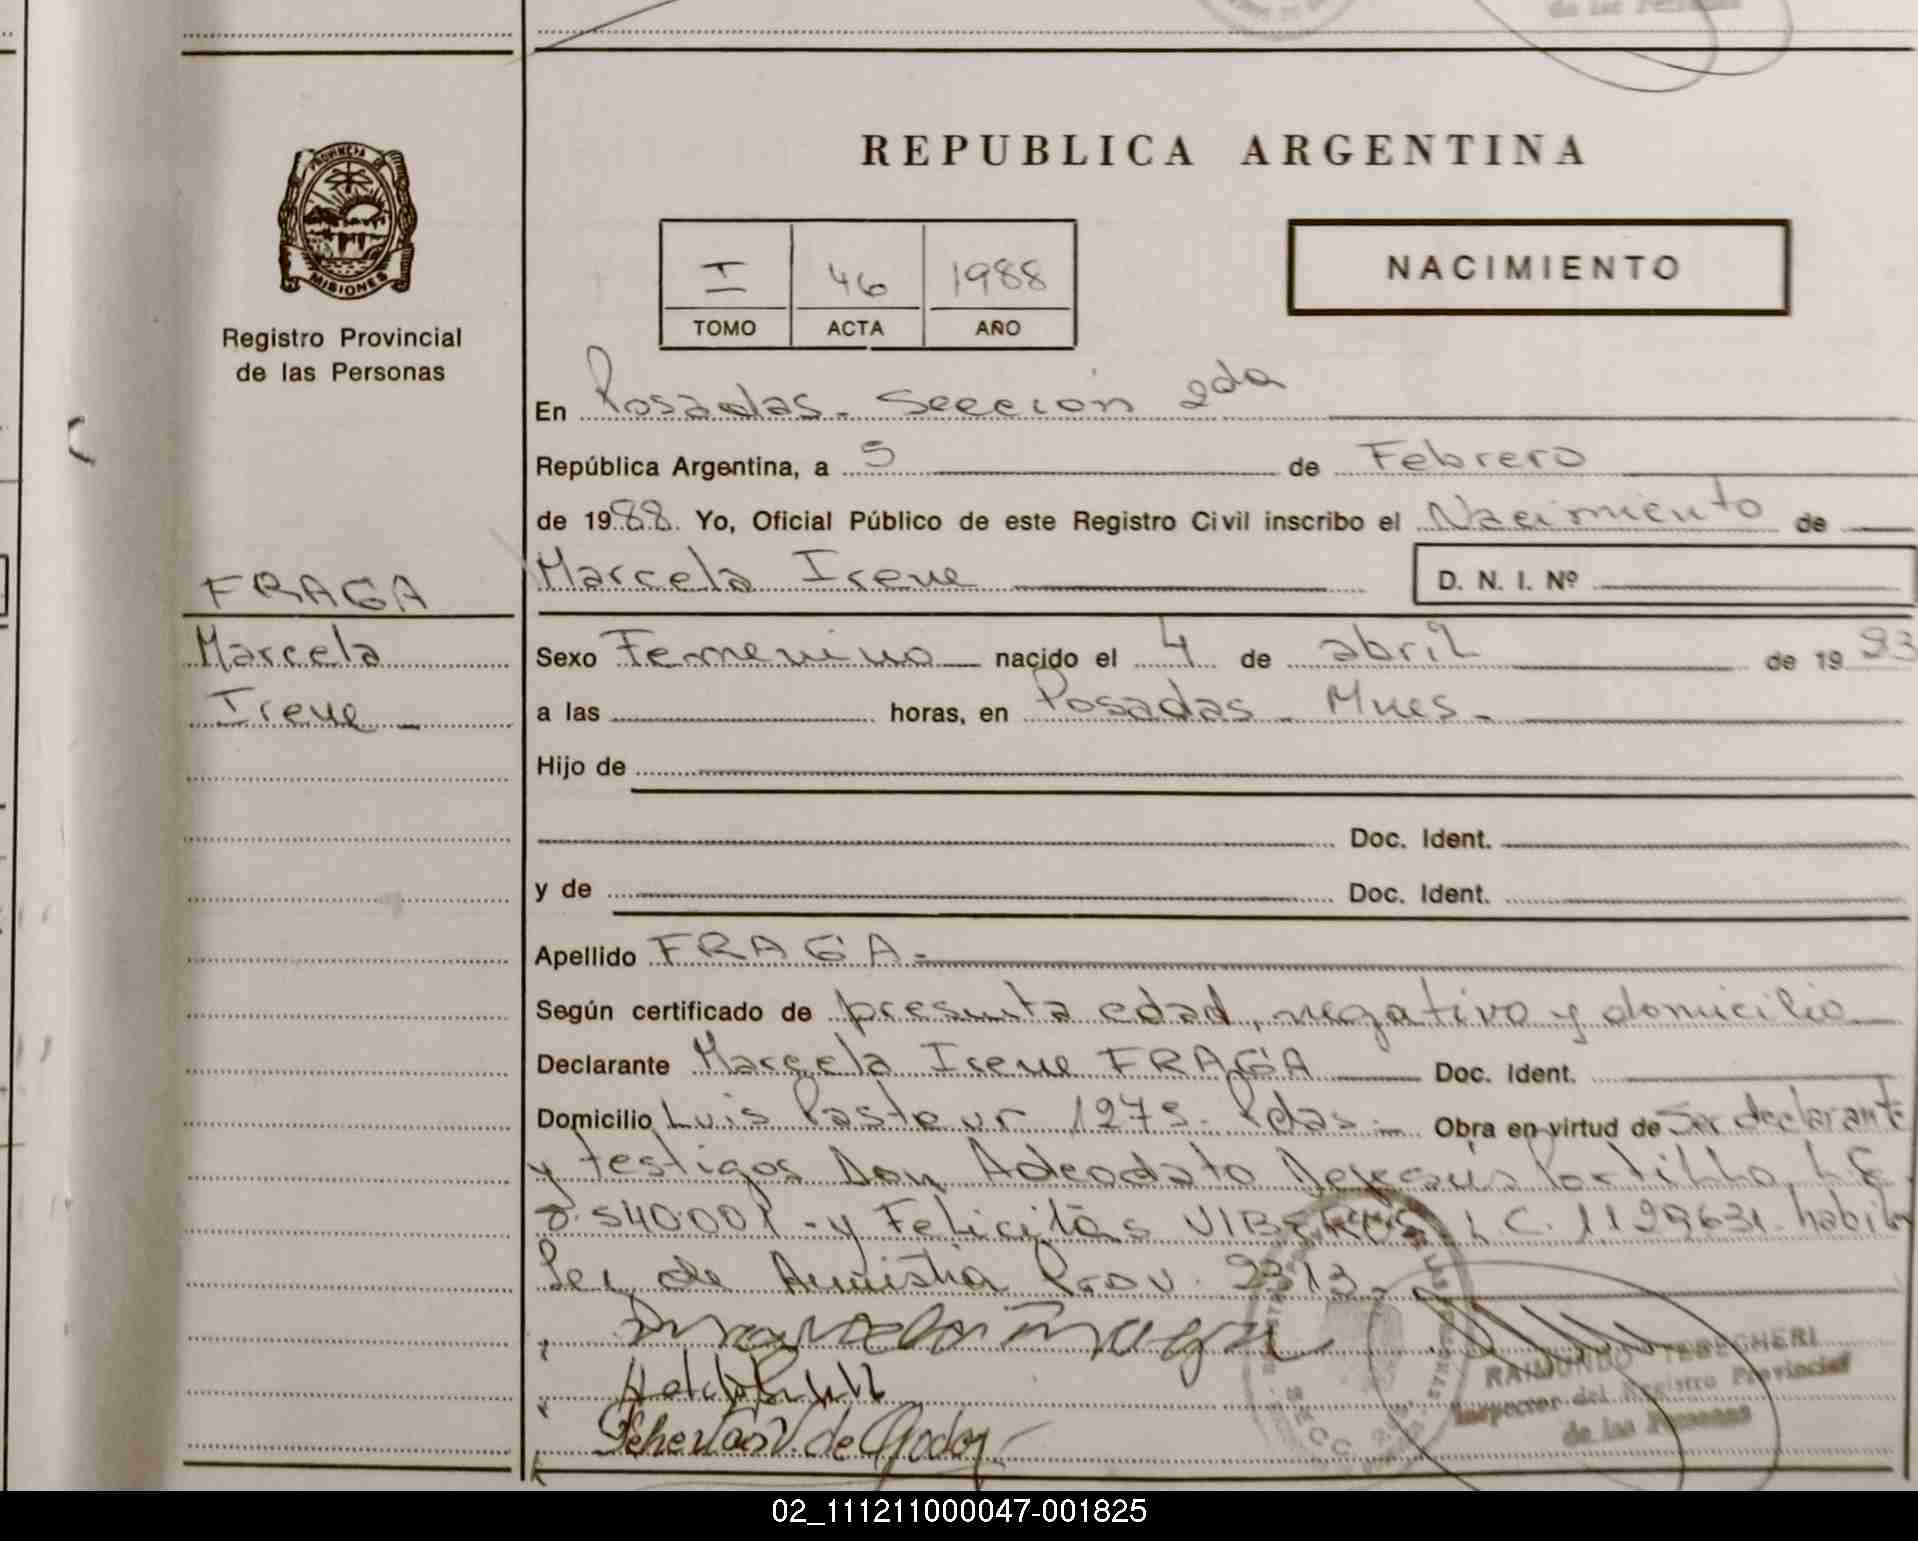 de las Personas
REPUBLICA ARGENTINA
PROVINCIA DE
MISIONES
Registro Provincial
de las Personas
I 46 1988
TOMO ACTA AÑO
NACIMIENTO
En Posadas - Sección 2da
República Argentina, a 5 de Febrero
de 1988. Yo, Oficial Público de este Registro Civil inscribo el Nacimiento de
Marcela Irene D. N. I. Nº
FRAGA
Marcela
Irene
Sexo Femenino nacido el 4 de abril de 19
a las horas, en Posadas - Mnes -
Hijo de
Doc. Ident.
y de Doc. Ident.
Apellido FRAGA -
Según certificado de presunta edad, negativo y domicilio
Declarante Marcela Irene FRAGA Doc. Ident.
Domicilio Luis Pasteur 1275 - Pdas - Obra en virtud de Ser declarante
y testigos Don Adeodato Portillo L.E.
540.001 - y Felicitas L.C. 1129631 -
Ley de Amnistia Prov. 2313 -
V. de Godoy
RAIMUNDO
Inspector del Registro Provincial
de las Personas
02_111211000047-001825